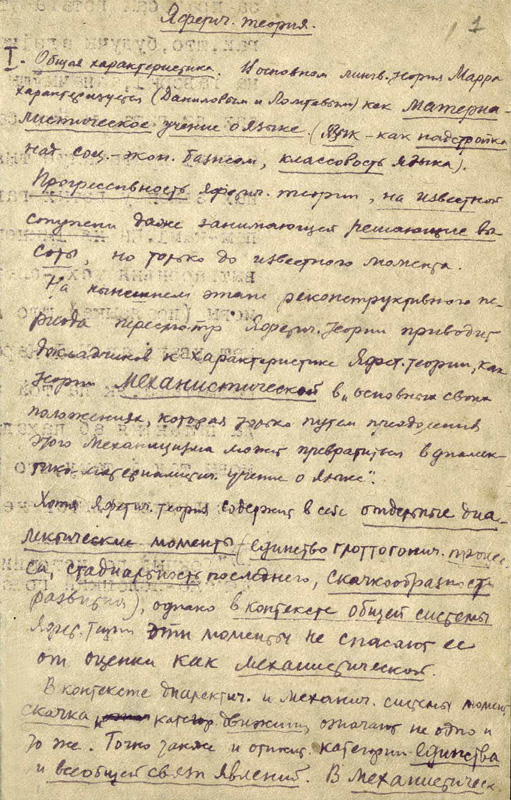 Яфетич. теория.
1
I. Общая характеристика. В основном лингв. теория Марра
характеризуется (Даниловым и Ломтевым) как материа-
листическое учение о языке. (Язык – как надстройка
над соц. экон. базисом, классовость языка).
Прогрессивность яфетич. теории, на известной
ступени даже занимающей решающие вы-
соты, но только до известного момента.
На нынешнем этапе реконструктивного пе-
риода пересмотр Яфетич. теории приводит
докладчиков к характеристике Яфет. теории, как
теории механистической в „основных своих
положениях которая только путем преодоления
этого механицизма может превратиться в диалек-
тико-материалистич. учение о языке".
Хотя Яфетич. теория содержит в себе отдельные диа-
лектические моменты (единство глоттогонич. процес-
са, стадиальность последнего, скачкообразность
развития), однако в контексте общей системы
Яфет. теории эти моменты не спасают ее
от оценки как механистической.
В контексте диалектич. и механич. системы момент
скачка категор. движения означают не одно и
то же. Точно также и относит. категории единства
и всеобщей связи явлений. В механистическ